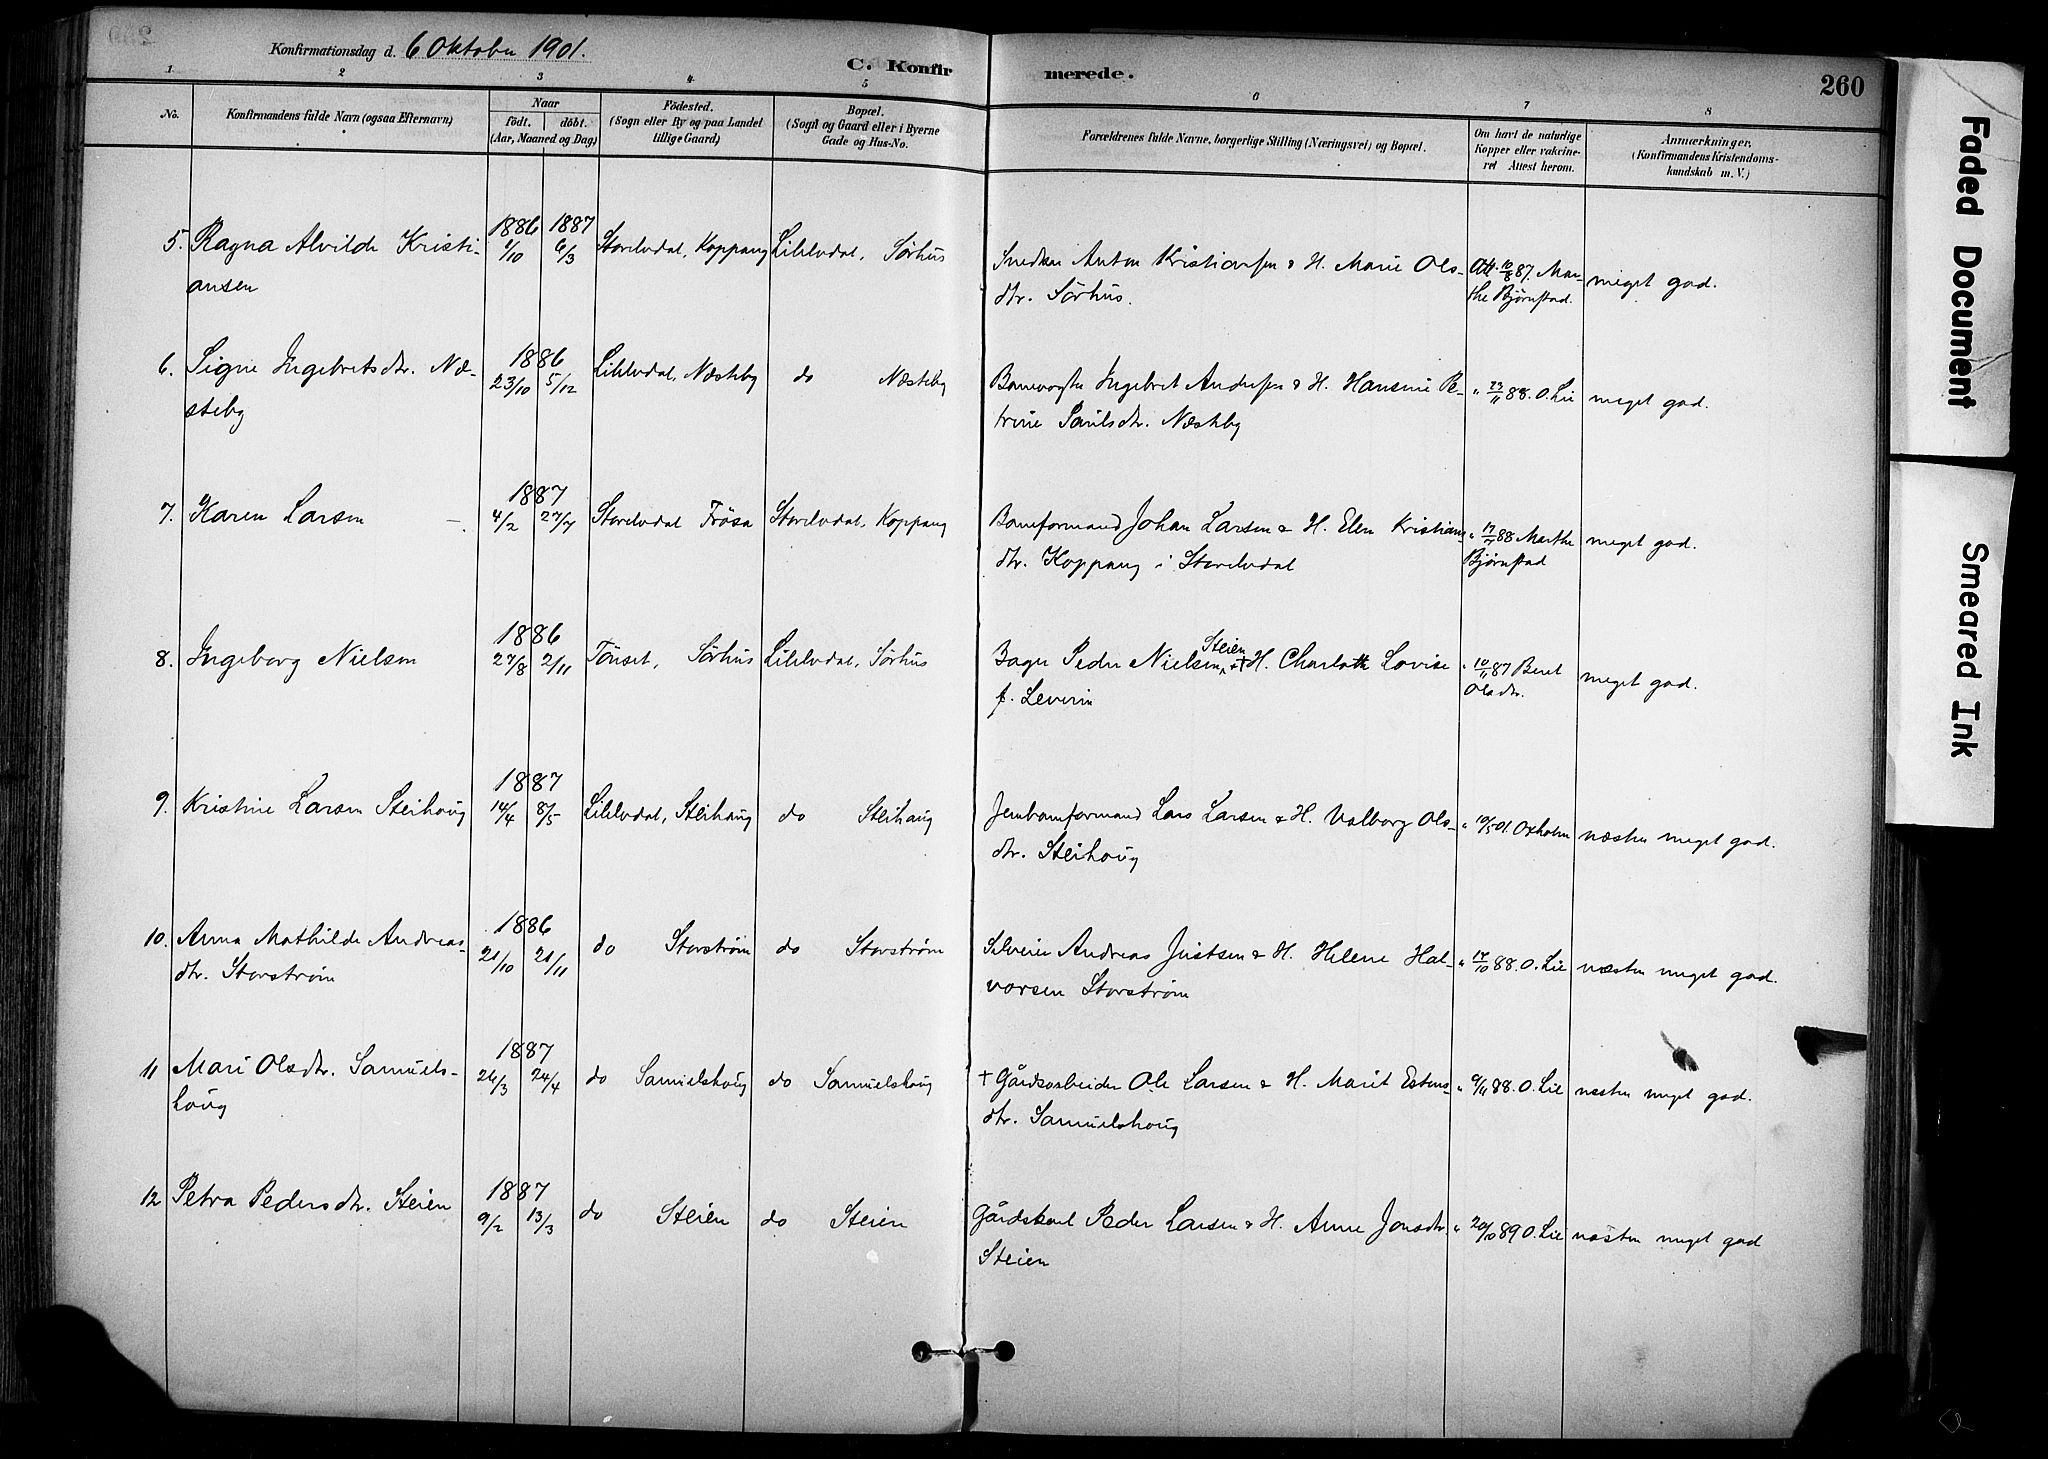 Konfirmationsdag d. 6 Oktober 1901.
C. Konfirmerede.
260
1 2 3 4 5 6 7 8
No.
Konfirmandens fulde Navn (ogsaa Efternavn)
Naar
födt. döbt.
(Aar, Maaned og Dag)
Födested.
(Sogn eller By og paa Landet
tillige Gaard)
Bopæl.
(Sogn og Gaard eller i Byerne
Gade og Hus-No.
Forældrenes fulde Navne, borgerlige Stilling (Næringsvei) og Bopæl.
Om havt de naturlige
Kopper eller vakcine-
ret Attest herom.
Anmærkninger.
(Konfirmandens Kristendoms-
kundskab m. V.)
5. Ragna Alvilde Kristi-
ansen
1886 1887
1/10 6/3
Storelvdal, Koppang
Lilelvdal, Sørhus
Snedker Anton Kristiansen & H. Marie Ols-
dtr. Sørhus.
Att. 10/8 87. Mar-
the Bjørnstad.
meget god.
6. Signe Ingebretsdtr. Næ-
steby
1886
23/10 5/12
Lilelvdal, Næsteby
do Næsteby
Banevogter Ingebret Andersen & H. Hansine Pe-
trine Paulsdtr. Næsteby
" 23/11 88. O. Lie
meget god.
7. Karen Larsen
1887
4/2 27/7
Storelvdal Trösa
Storelvdal, Koppang
Baneformand Johan Larsen & H. Elen Kristians-
dtr. Koppang i Storelvdal
" 88 Marthe
Bjørnstad
meget god.
8. Ingeborg Nielsen
1886
27/8 2/11
Tönset, Sørhus
Lilelvdal, Sørhus
Bager Peder Nielsen Steien & + H. Charlotte Lovise
f. Leverin
" 10/11 87 Beret
Olsdtr.
meget god.
9. Kristine Larsen Steihoug
1887
14/4 8/5
Lilelvdal, Steihaug
do Steihaug
Jernbaneformand Lars Larsen & H. Valborg Ols-
dtr. Steihoug
" 10/5 01. Oxholm
næsten meget god.
10. Anna Mathilde Andreas-
dtr. Storstrøm
1886
21/10 21/11
do Storstrøm
do Storstrøm
Selveier Andreas Justsen & H. Helene Hal-
vorsen Storstrøm
" 17/10 88. O. Lie
næsten meget god.
11 Mari Olsdtr. Samuels-
houg
1887
26/3 24/4
do Samuelshoug
do Samuelshoug
+ Gårdsarbeider Ole Larsen & H. Marit Estens-
dtr. Samuelshoug
" 9/11 88. O. Lie
næsten meget god.
12 Petra Pedersdtr. Steien
1887
9/2 13/3
do Steien
do Steien
Gårdskarl Peder Larsen & H. Anne Jonsdtr.
Steien
" 20/10 89 O. Lie
næsten meget god
Faded Document
Smeared Ink